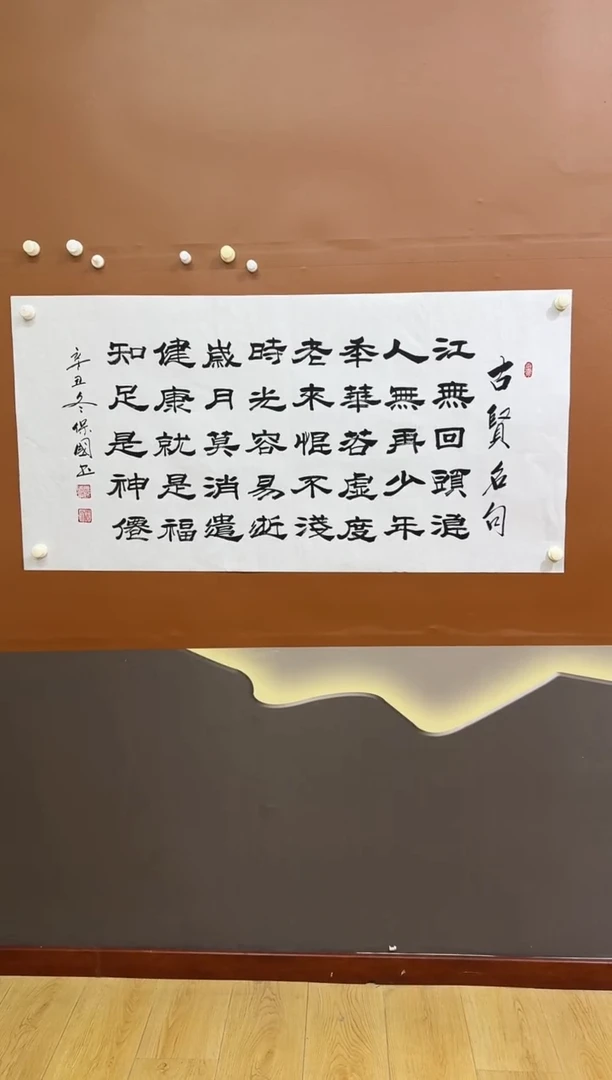 古賢名句
江無回頭浪
人無再少年
年華若虛度
老來恨不淺
時光容易逝
歲月莫消遣
健康就是福
知足是神僊
辛丑冬保國书